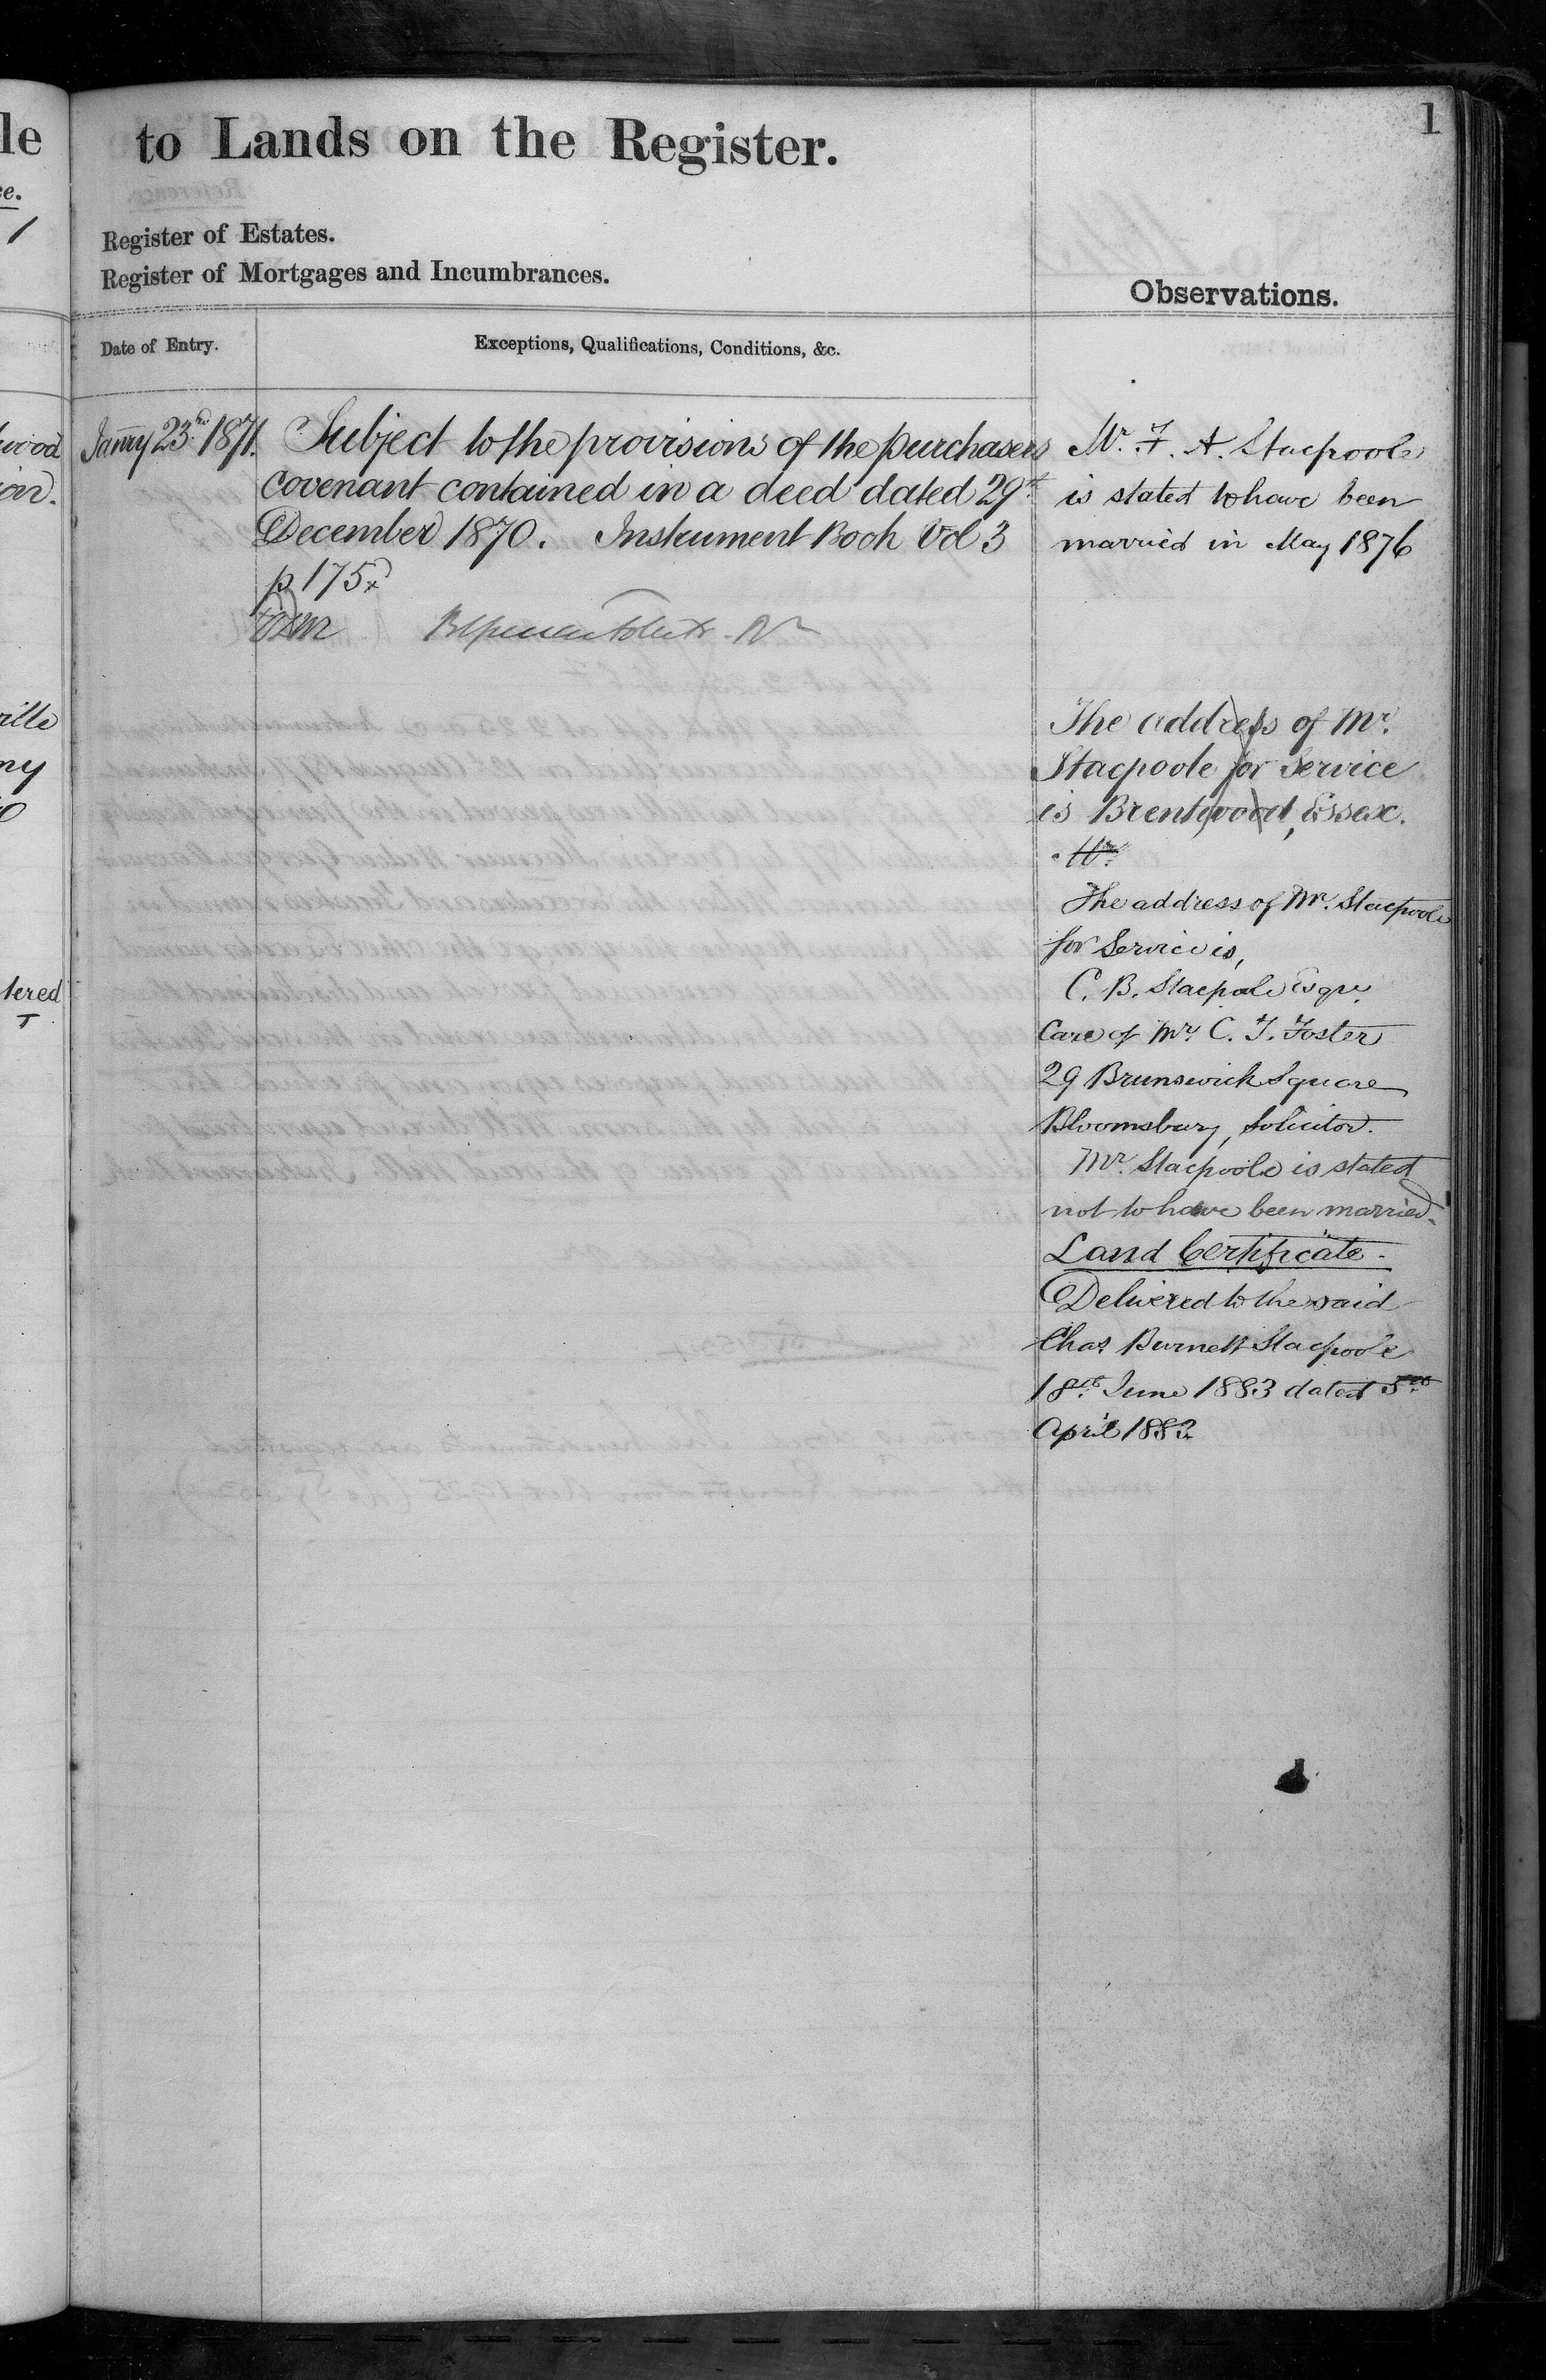 le
ce.
1
wood
ville
ny
tered
1
to Lands on the Register.
Register of Estates.
Register of Mortgages and Incumbrances.
Observations.
Date of Entry.
Exceptions, Qualifications, Conditions, &c.
Janry 23rd 1871.
Subject to the provisions of the purchasers
covenant contained in a deed dated 29th
December 1870. Instrument Book Vol 3
p 175
Mr. F. A. Stacpoole
is stated to have been
married in May 1876
The address of Mr.
Stacpoole for Service
is Brentwood, Essex.
Mr.
The address of Mr. Stacpoole
for Service is,
C. B. Stacpole Esqre
Care of Mr. C. J. Foster
29 Brunswick Square
Bloomsbury, Solicitor.
Mr. Stacpoole is stated
not to have been married.
Land Certificate.
Delivered to the said
Chas. Burnett Stacpoole
18th June 1883 dated 5th
April 1882